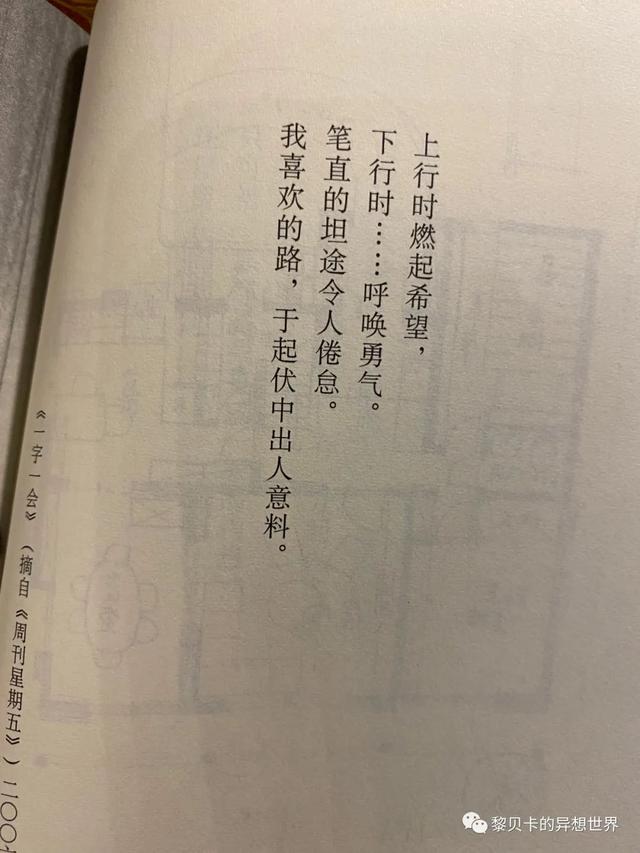 上行时燃起希望，
下行时……呼唤勇气。
笔直的坦途令人倦怠。
我喜欢的路，于起伏中出人意料。
《一字一会》（摘自《周刊星期五》）二〇〇
黎贝卡的异想世界